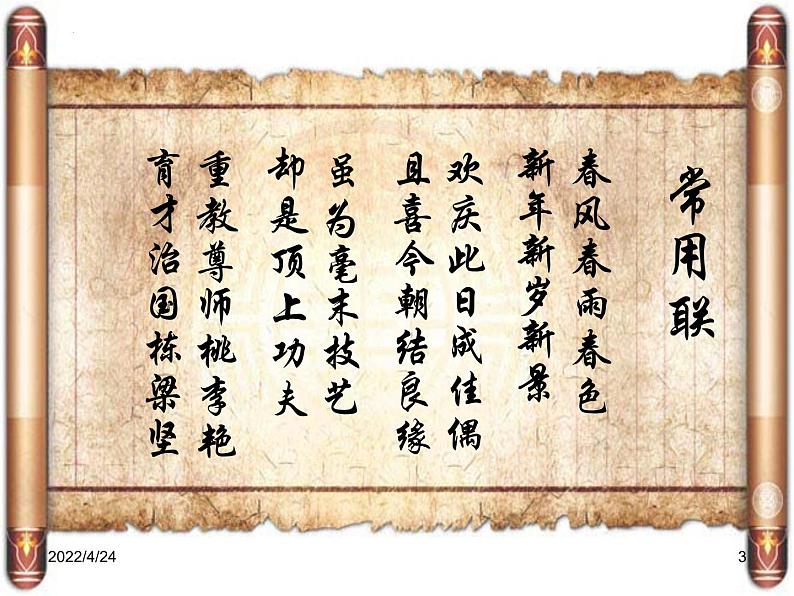 常用联
春风春雨春色
新年新岁新景
欢庆此日成佳偶
且喜今朝结良缘
虽为毫末技艺
却是顶上功夫
重教尊师桃李艳
育才治国栋梁坚
2022/4/24
3